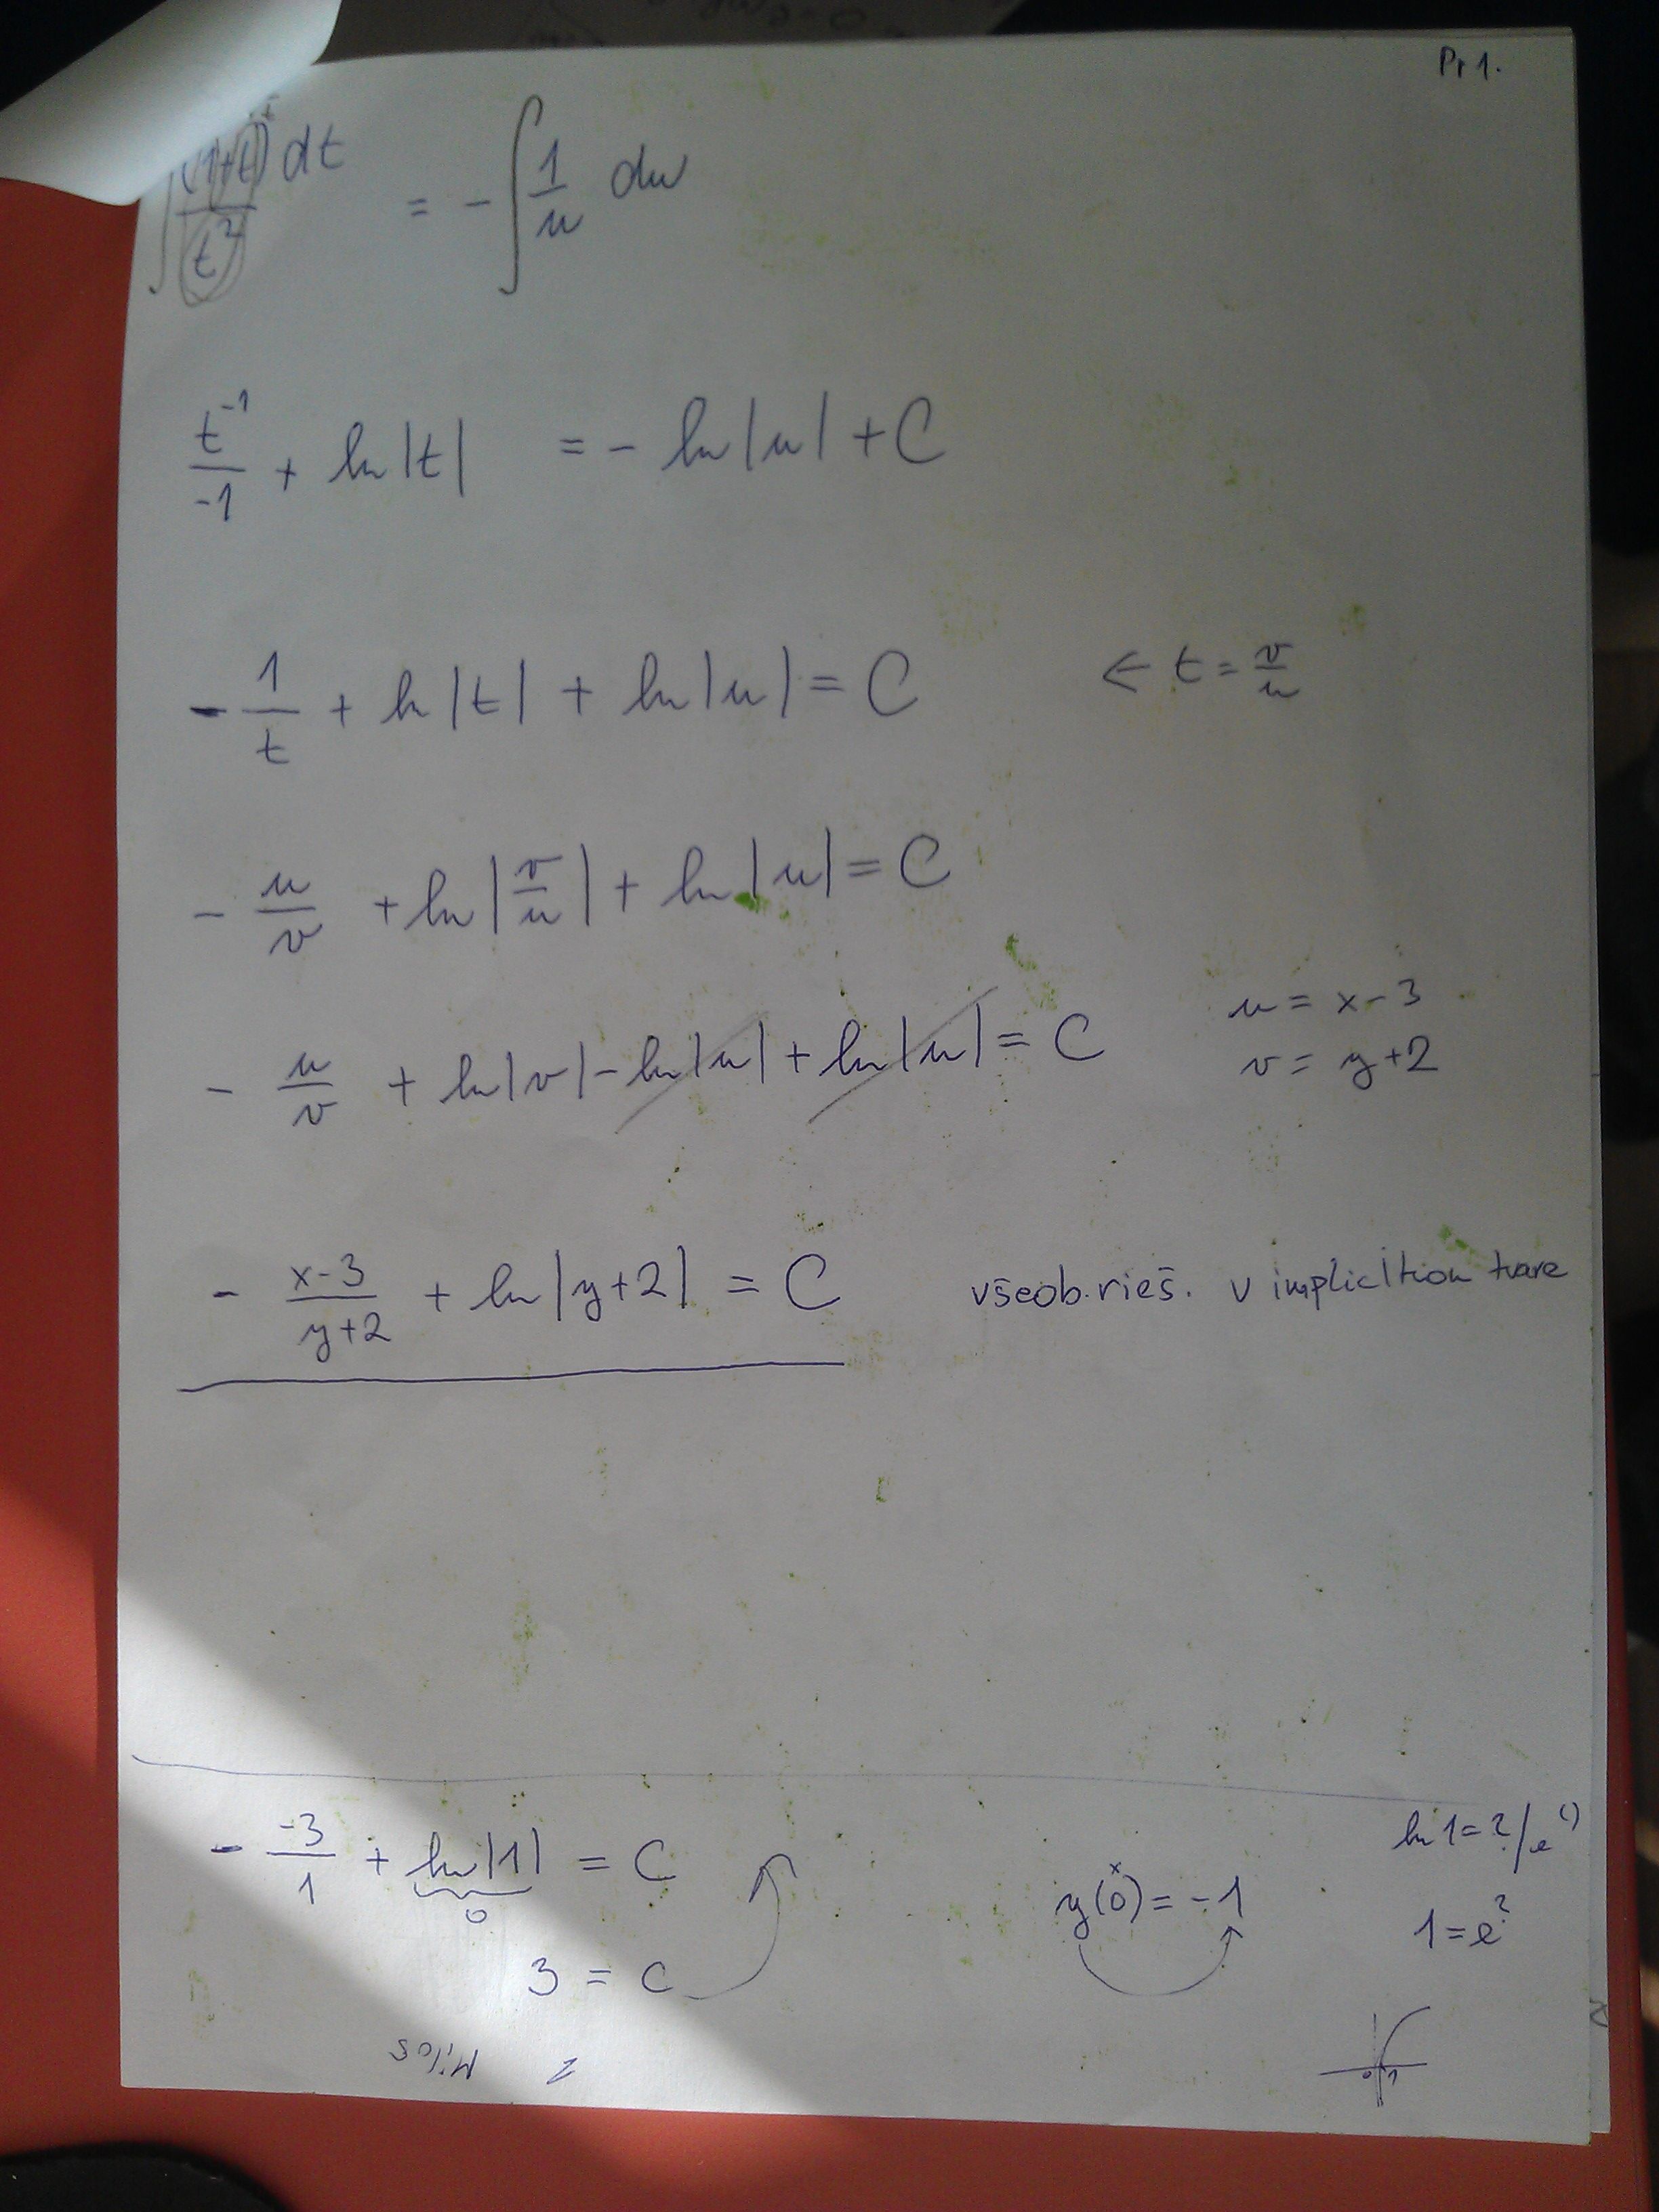 Pr 1.
∫ (1+t) / t² dt = - ∫ 1/u du
t⁻¹/-1 + ln|t| = - ln|u| + C
- 1/t + ln|t| + ln|u| = C ← t = v/u
- u/v + ln|v/u| + ln|u| = C
- u/v + ln|v| - ln|u| + ln|u| = C
u = x-3
v = y+2
- x-3/y+2 + ln|y+2| = C všeob. rieš. v implicitnom tvare
- -3/1 + ln|1| = C
0
3 = C
x
y(0) = -1
ln 1 = ? /e^()
1 = e^?
0 1
2 Milos